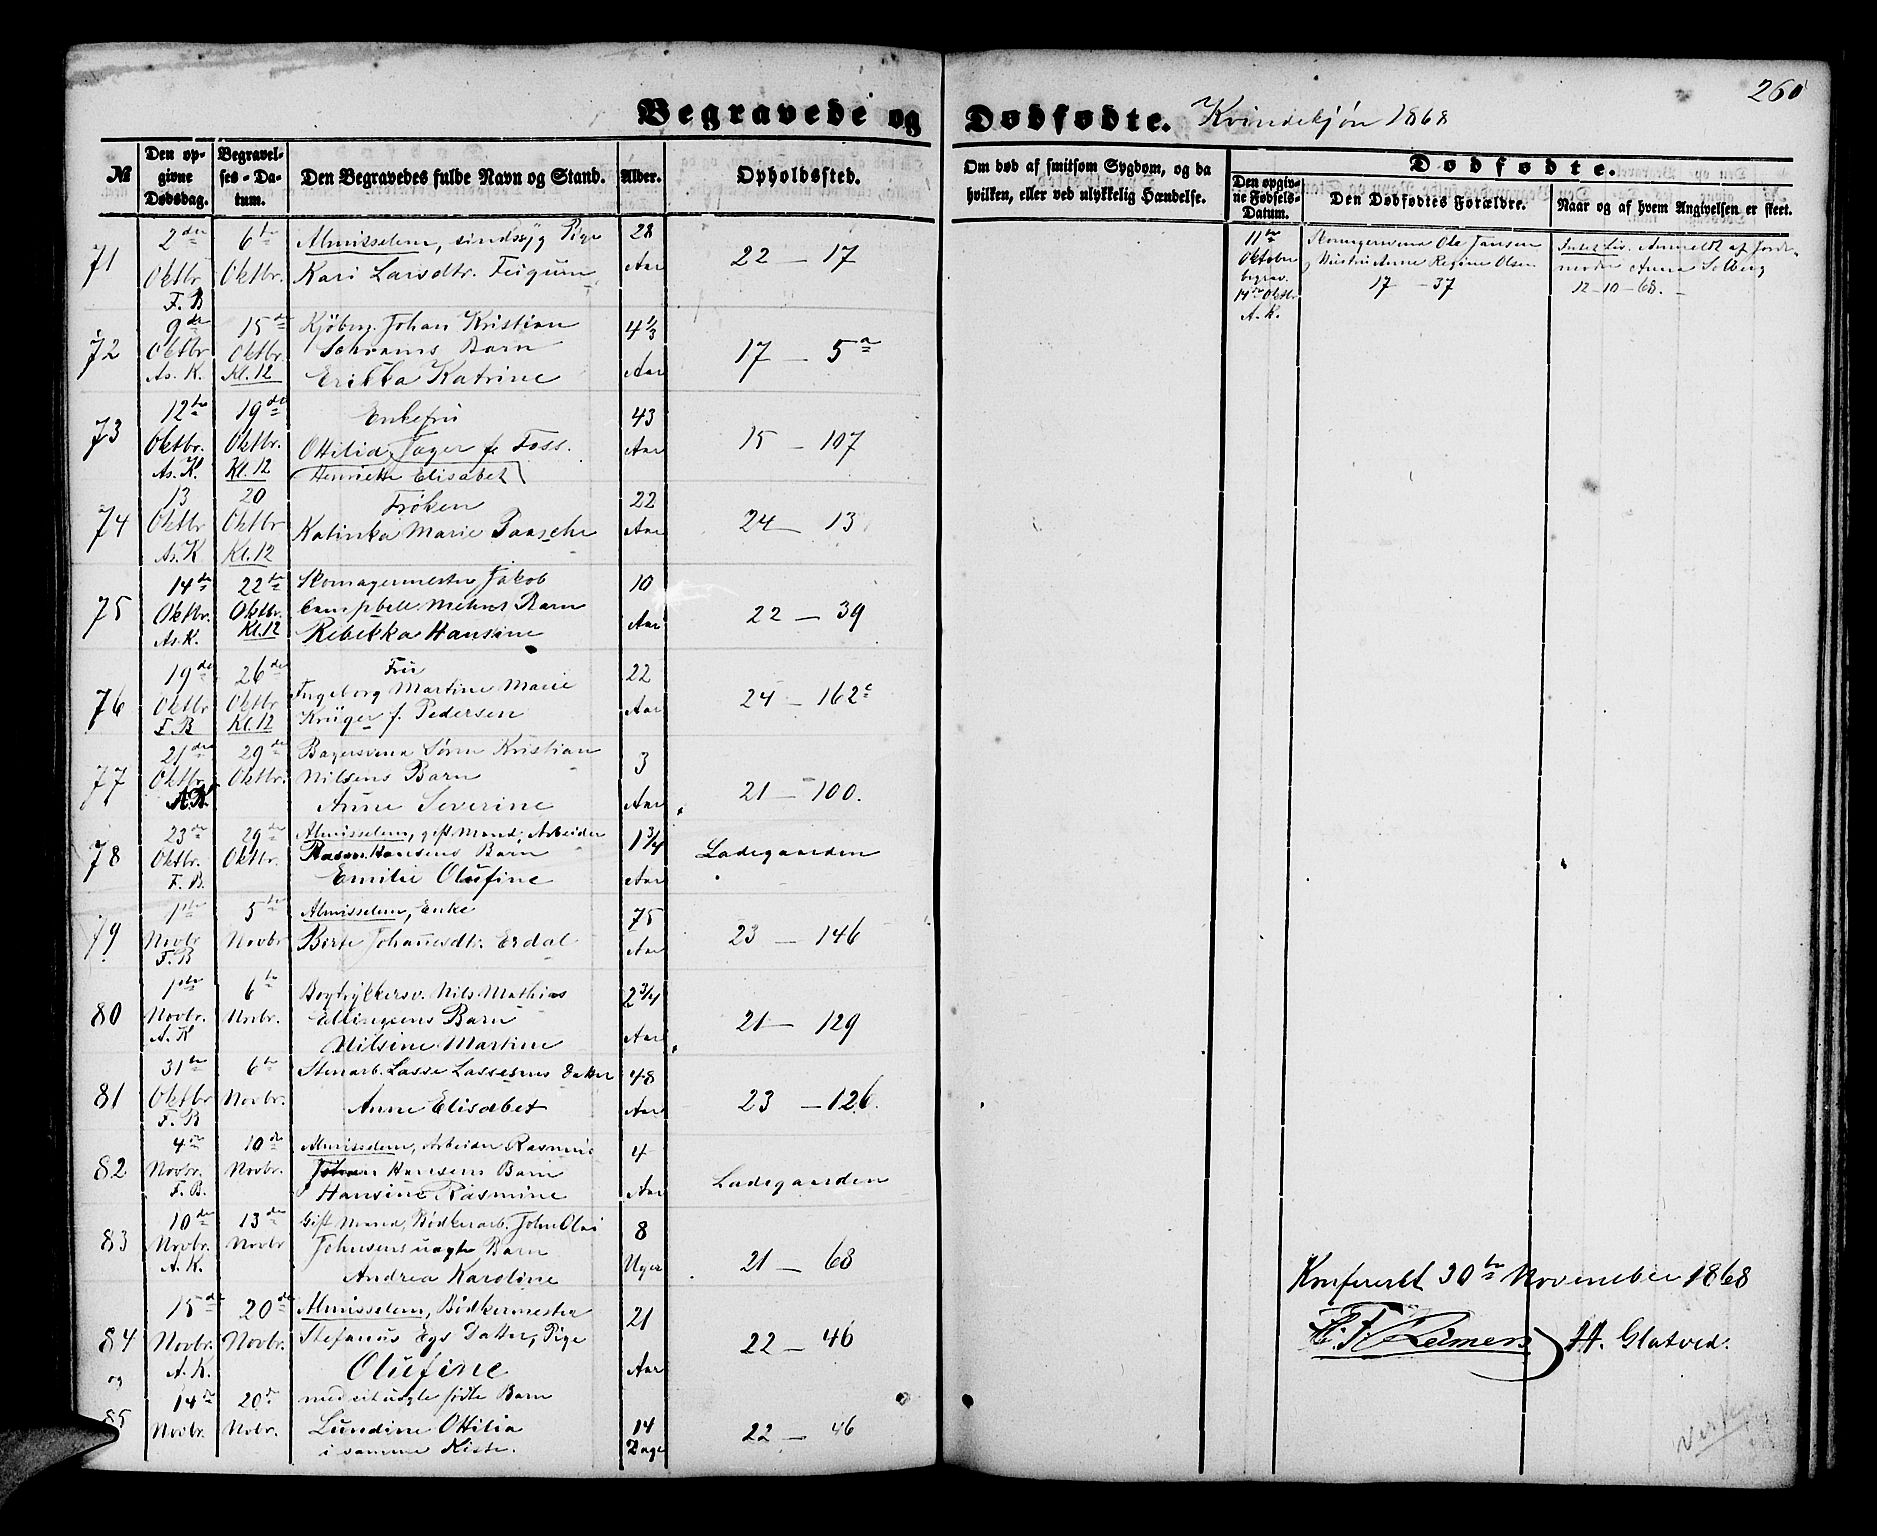 260
Begravede og Dødfødte. Kvindekjøn 1868
№
Den opgivne Dødsdag.
Begravelses-Datum.
Den Begravedes fulde Navn og Stand.
Alder.
Opholdssted.
Om død af smitsom Sygdom, og da hvilken, eller ved ulykkelig Hændelse.
Dødfødte.
Den opgivne Fødsels-Datum.
Den Dødfødtes Forældre.
Naar og af hvem Angivelsen er skeet.
71
2den Oktbr. F. B
6te Oktbr.
Almisselem, sindssyg Pige
Kari Larsdtr. Feigum
28 Aar
22 — 17
72
9de Oktbr. As. K.
15de Oktbr. Kl. 12
Kjøbm. Johan Kristian
Schrams Barn
Erikka Katrine
4 1/3 Aar
17 — 5a
73
12te Oktbr. As. K.
19de Oktbr. Kl. 12
Enkefru
Ottilia Jager f. Foss.
Henriette Elisabet
43 Aar
15 — 107
74
13 Oktbr As. K
20 Oktbr. Kl. 12
Frøken
Katinka Marie Paasche
22 Aar
24 — 13
75
14de Oktbr. As. K.
22de Oktbr. Kl. 12
Skomagermester Jakob
Campbell Mehns Barn
Rebekka Hansine
10 Aar
22 — 39
76
19de Oktbr F. B
26de Oktbr. Kl. 12
Fru
Ingeborg Martine Marie
Krüger f. Pedersen
22 Aar
24 — 162c
77
21de Oktbr. A. K.
29de Oktbr.
Bagersvend Sørn Kristian
Nilsens Barn
Anne Severine
3 Aar
21 — 100.
78
23de Oktbr. F. B.
29de Oktbr.
Almisselem, gift Mand, Arbeider
Rasm. Hansens Barn
Emilie Olufine
1 3/4 Aar
Ladegaarden
79
1ste Novbr F. B
5te Novbr
Almisselem, Enke
Birte Johannesdtr. Erdal
75 Aar
23 — 146
80
1ste Novbr. A. K
6te Novbr.
Bogtrykkersv. Nils Mathias
Ellingsens Barn
Nilsine Martine
2 3/4 Aar
21 — 129
81
31te Oktbr F. B
6te Novbr.
Stenarb. Lasse Lassesens Datter
Anne Elisabet
48 Aar
23 — 126.
82
4de Novbr. F. B.
10de Novbr.
Almisselem, Arbeider Rasmus
Johan Hansens Barn
Hansine Rasmine
4 Aar
Ladegaarden
83
10de Novbr. A. K.
13de Novbr
Gift Mand, Bødkerarb. John Olai
Johnsens uægte Barn
Andrea Karoline
8 Uger
21 — 68
84
15de Novbr. A. K.
20de Novbr.
Almisselem, Bødkermester
Stefanus Egs Datter, Pige
Olufine
21 Aar
22 — 46
og
85
14de Novbr.
20de Nobr.
med sit uægte fødte Barn
Lundine Ottilia
i samme Kiste.
14 Dage
22 — 46
11te Oktober begrav. 14de Oktbr. A. K.
Skomagersvend Ole Jansen
og Hustru Anne Regine Olsen
17 — 37
Anmeldt af Jordmoder Anna Solberg
12-10-68. —
Konfereret 30te November 1868
Reimers H. Glatved.